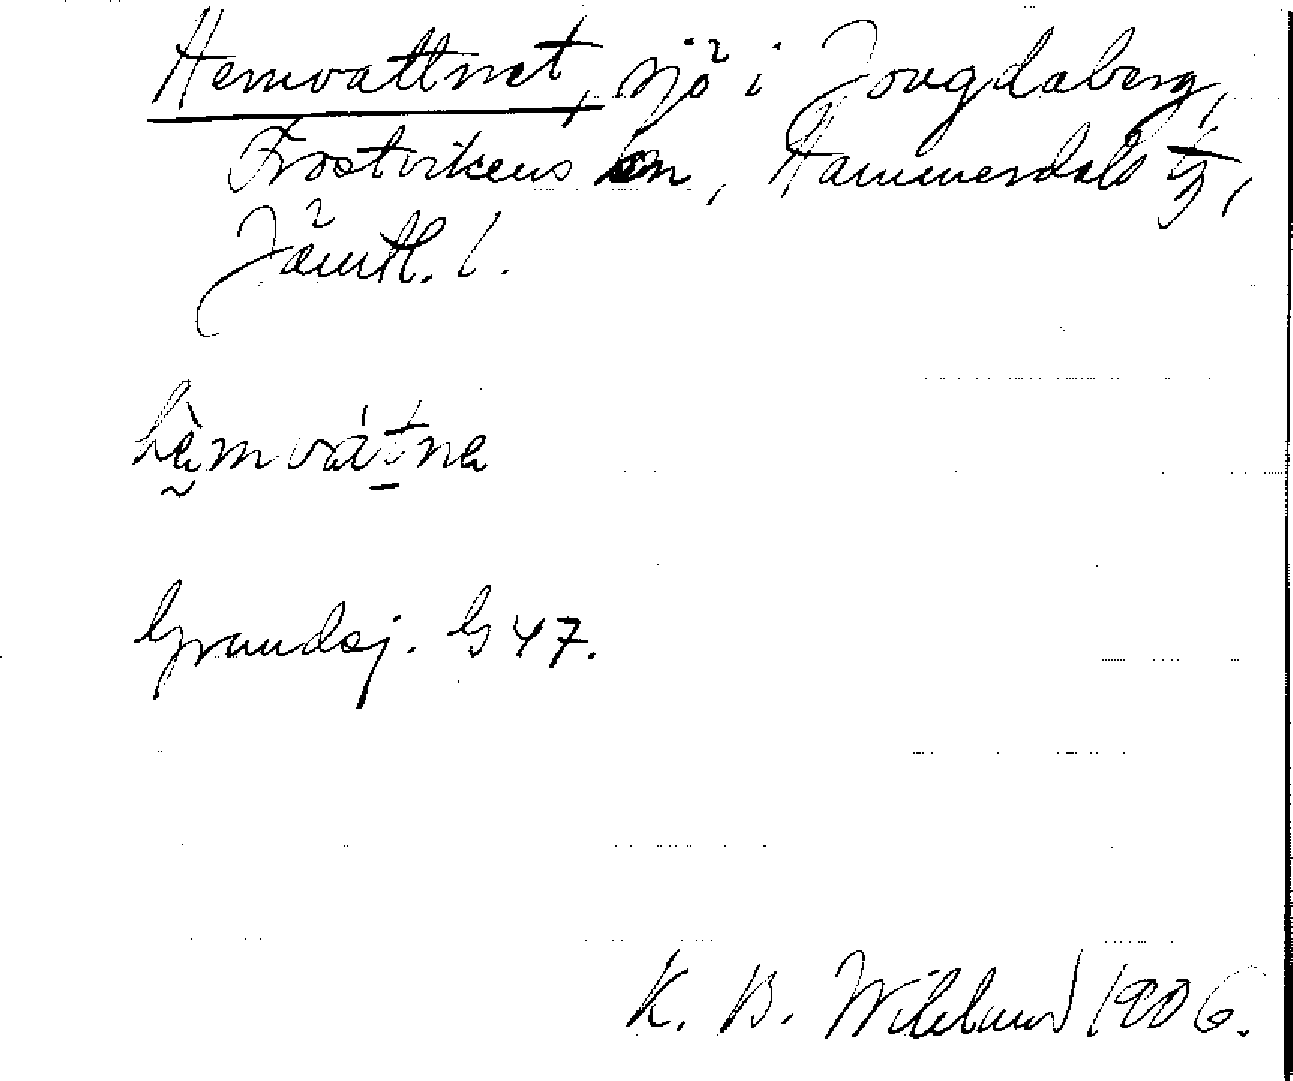 Hemvattnet, sjö i Jougdaberg,
Frostvikens sn, Hammerdals tg,
Jämtl. l.
hèm vátna
Grundsj. G 47.
K. B. Wiklund 1906.